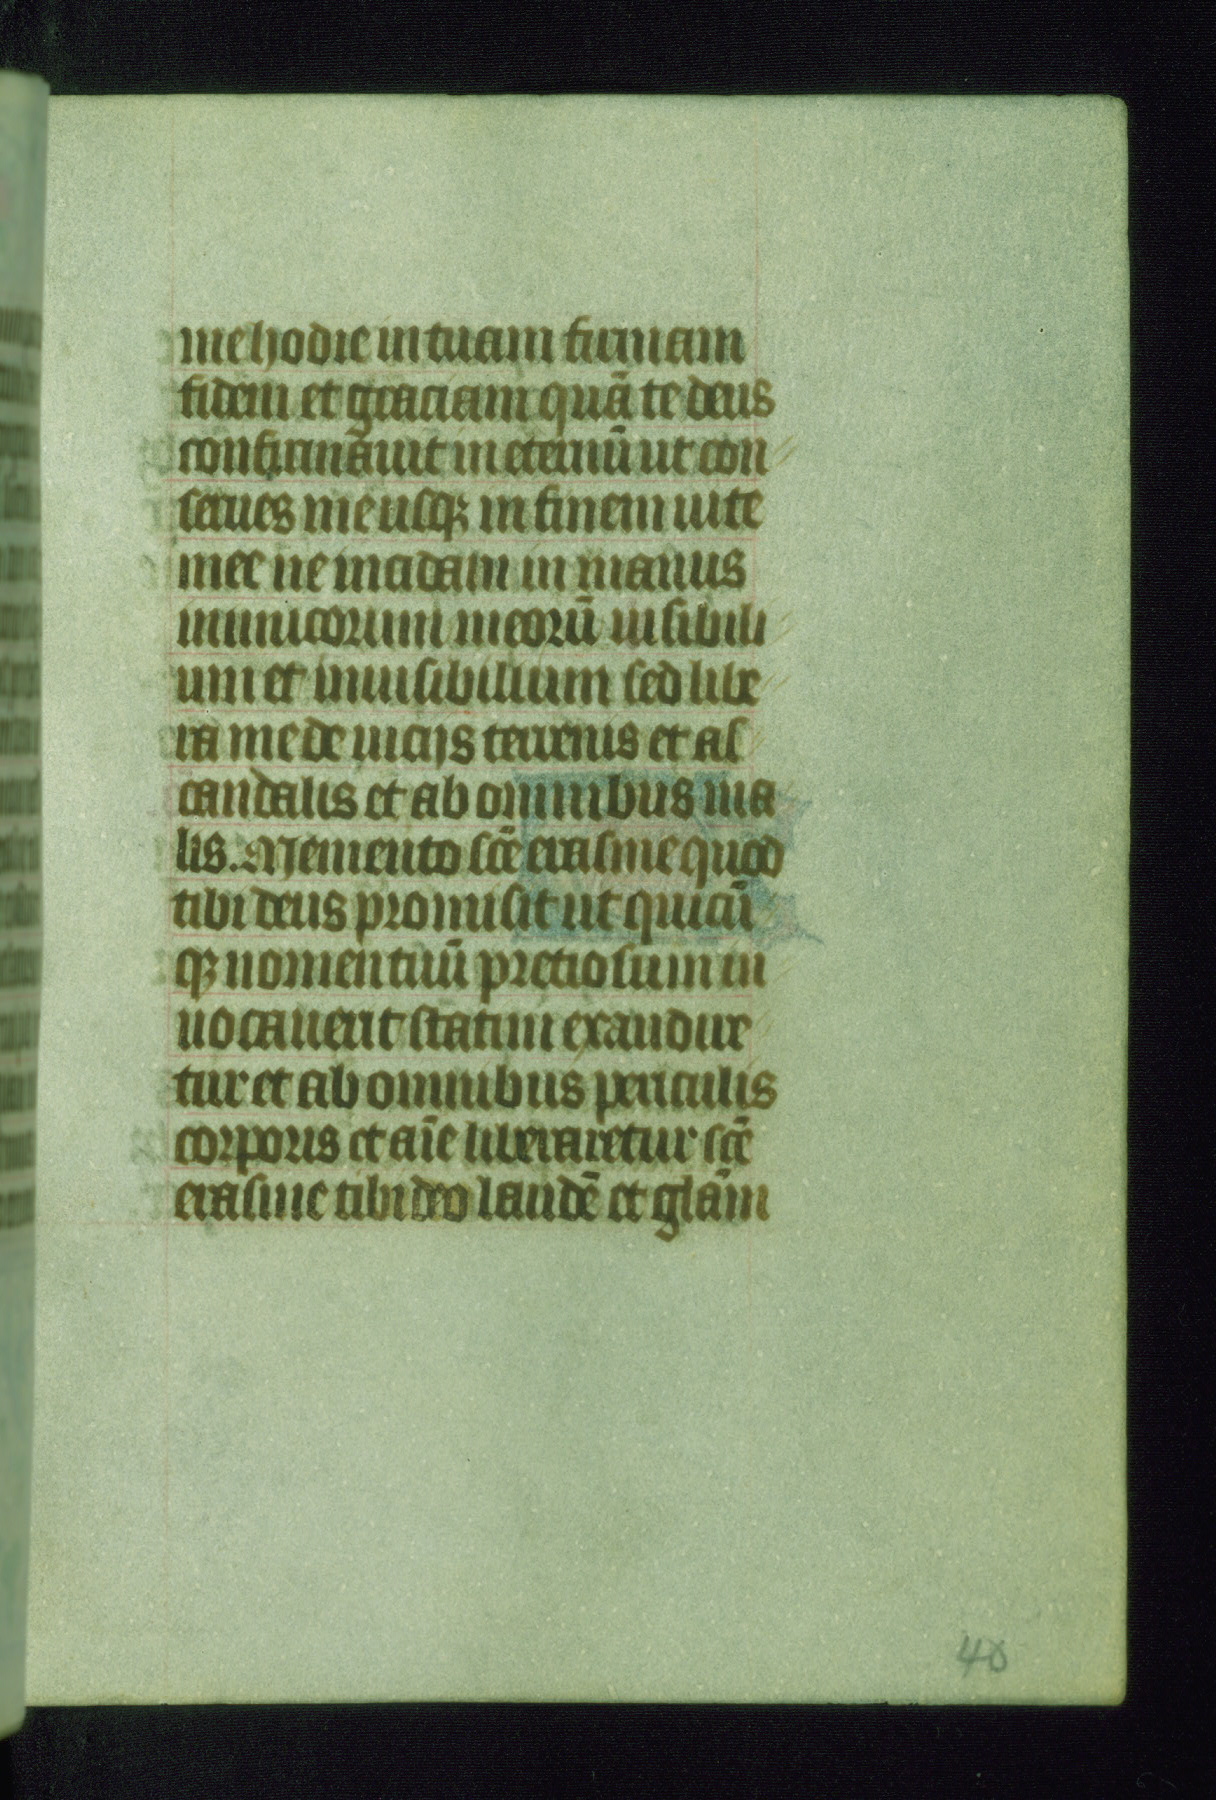 me hodie in tuam firmam
fidem et graciam quā te deus
confirmauit in eternū ut con
serues me usqꝫ in finem uite
mee ne incidam in manus
inimicorum meorū uisibili
um et inuisibilium sed libe
ra me de uicijs terrenis et as
candalis et ab omnibus ma
lis. Memento scē erasme quod
tibi deus promisit ut quicū
qꝫ nomen tuū pretiosum in
uocauerit statim exaudire
tur et ab omnibus periculis
corporis et aīe liberaretur scē
erasme tibi deo laudē et glām
48